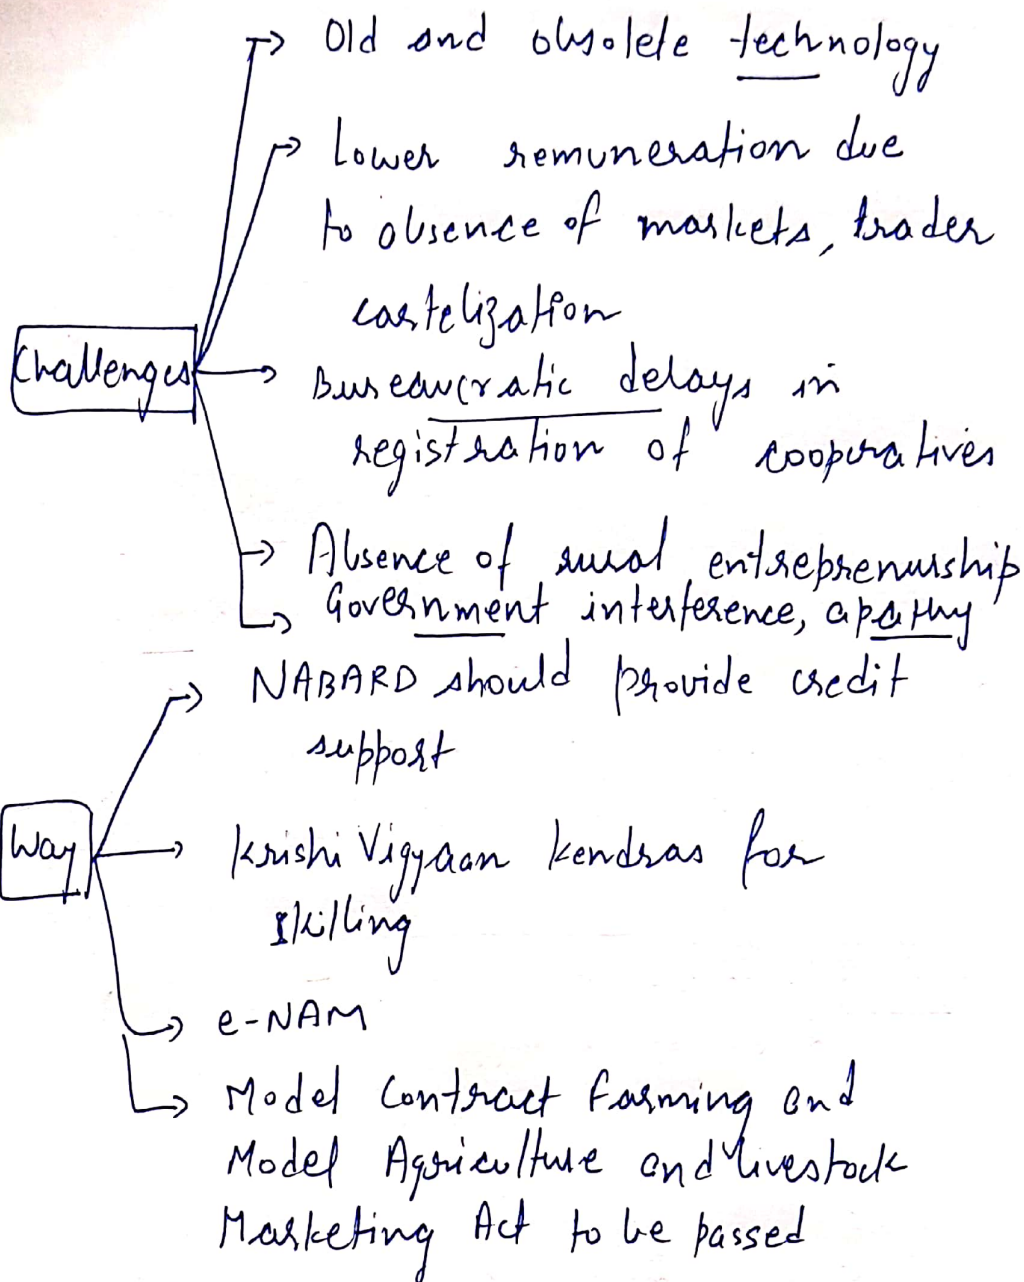 Old and obsolete technology
Lower remuneration due
to absence of markets, trader
cartelization
Challenges
Bureaucratic delays in
registration of cooperatives
Absence of rural entreprenurship
Government interference, apathy
NABARD should provide credit
support
Way
Krishi Vigyaan Kendras for
skilling
e-NAM
Model Contract Farming and
Model Agriculture and Livestock
Marketing Act to be passed